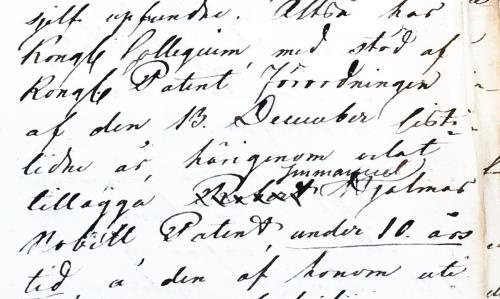 sjelf upfundne. Altså har
Kongl Collegium, med stöd af
Kongl Patent Förordningen
af den 13. December sist-
lidne år, härigenom velat
Immanuel
tillägga Hjalmar
Nobell Patent under 10. års
tid å den af honom